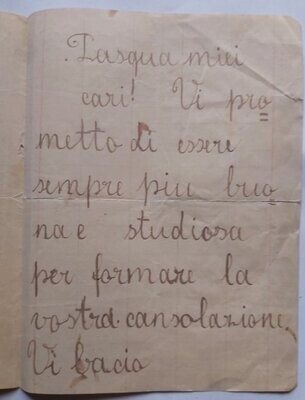 . Pasqua miei
cari! Vi pro
metto di essere
sempre piu buo
na e studiosa
per formare la
vostra cansolazione.
Vi bacio